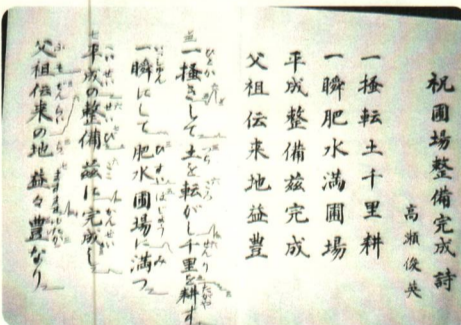 祝圃場整備完成詩
高瀬俊英
一搔転土千里耕
一瞬肥水満圃場
平成整備玆完成
父祖伝来地益豊
一搔きして土を転がし千里を耕す
一瞬にして肥水圃場に満つ
平成の整備玆に完成し
父祖伝来の地益々豊なり